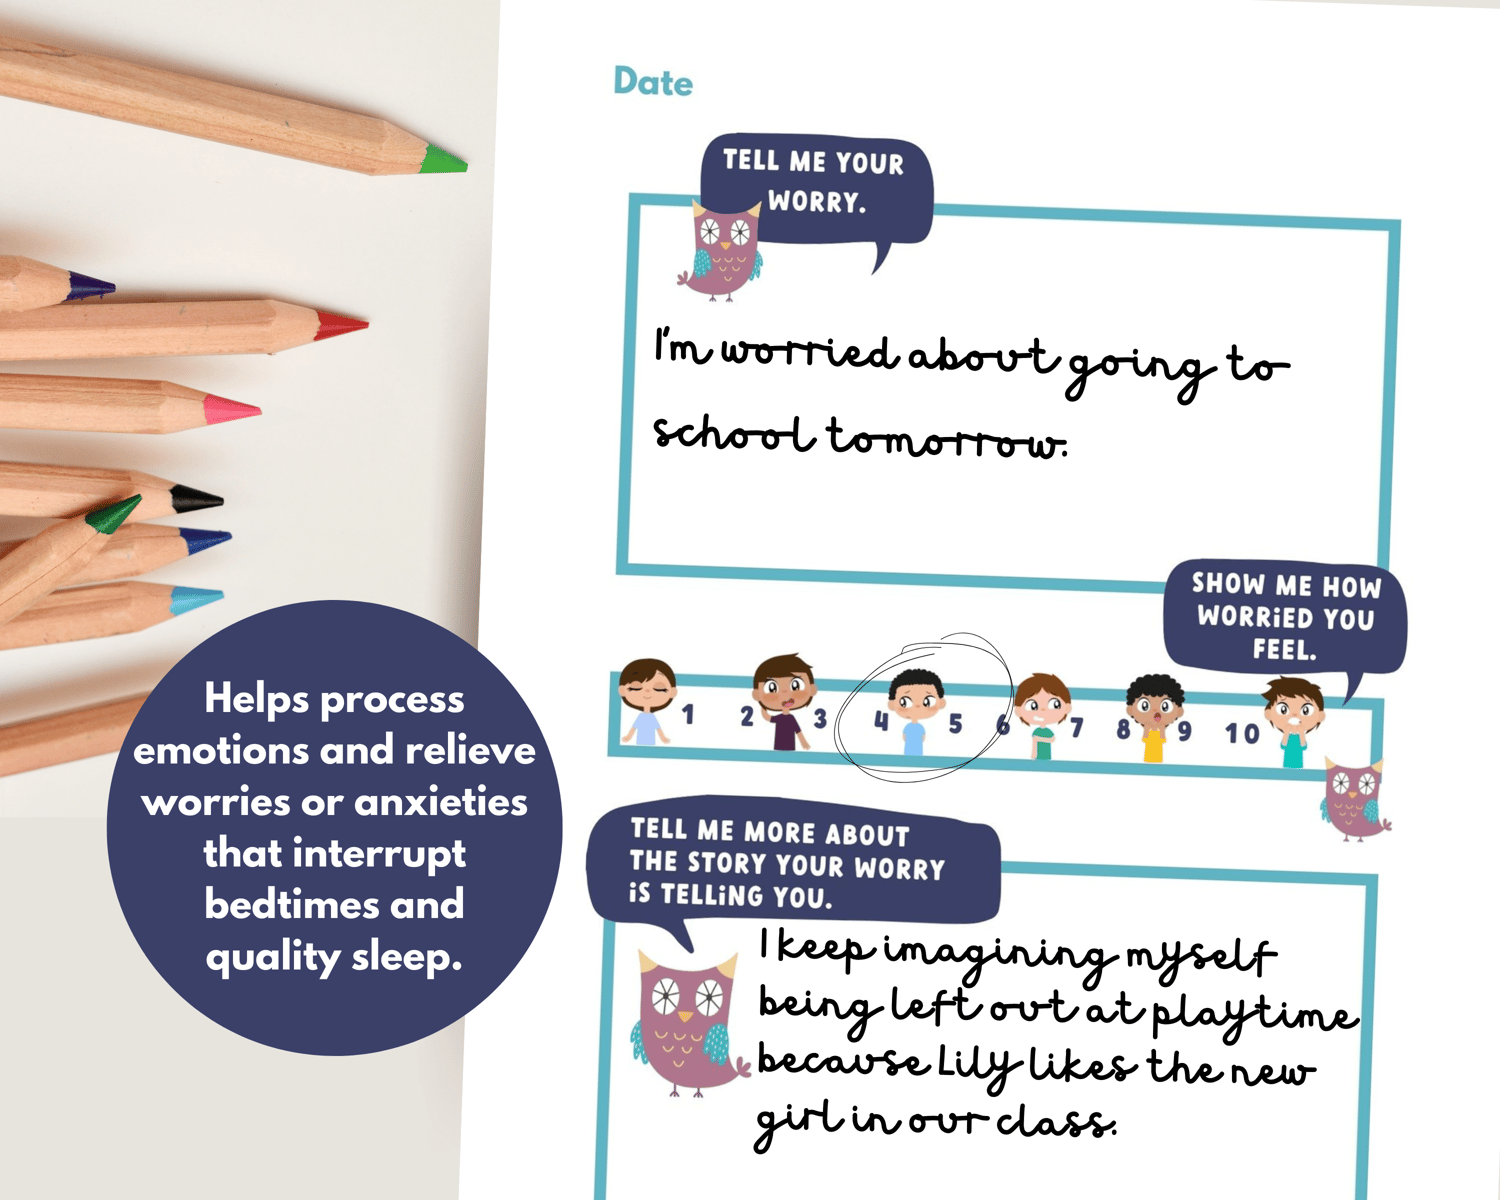 Date
TELL ME YOUR
WORRY.
I'm worried about going to
school tomorrow.
SHOW ME HOW
WORRiED YOU
FEEL.
1 2 3 4 5 6 7 8 9 10
TELL ME MORE ABOUT
THE STORY YOUR WORRY
iS TELLiNG YOU.
I keep imagining myself
being left out at playtime
because Lily likes the new
girl in our class.
Helps process
emotions and relieve
worries or anxieties
that interrupt
bedtimes and
quality sleep.